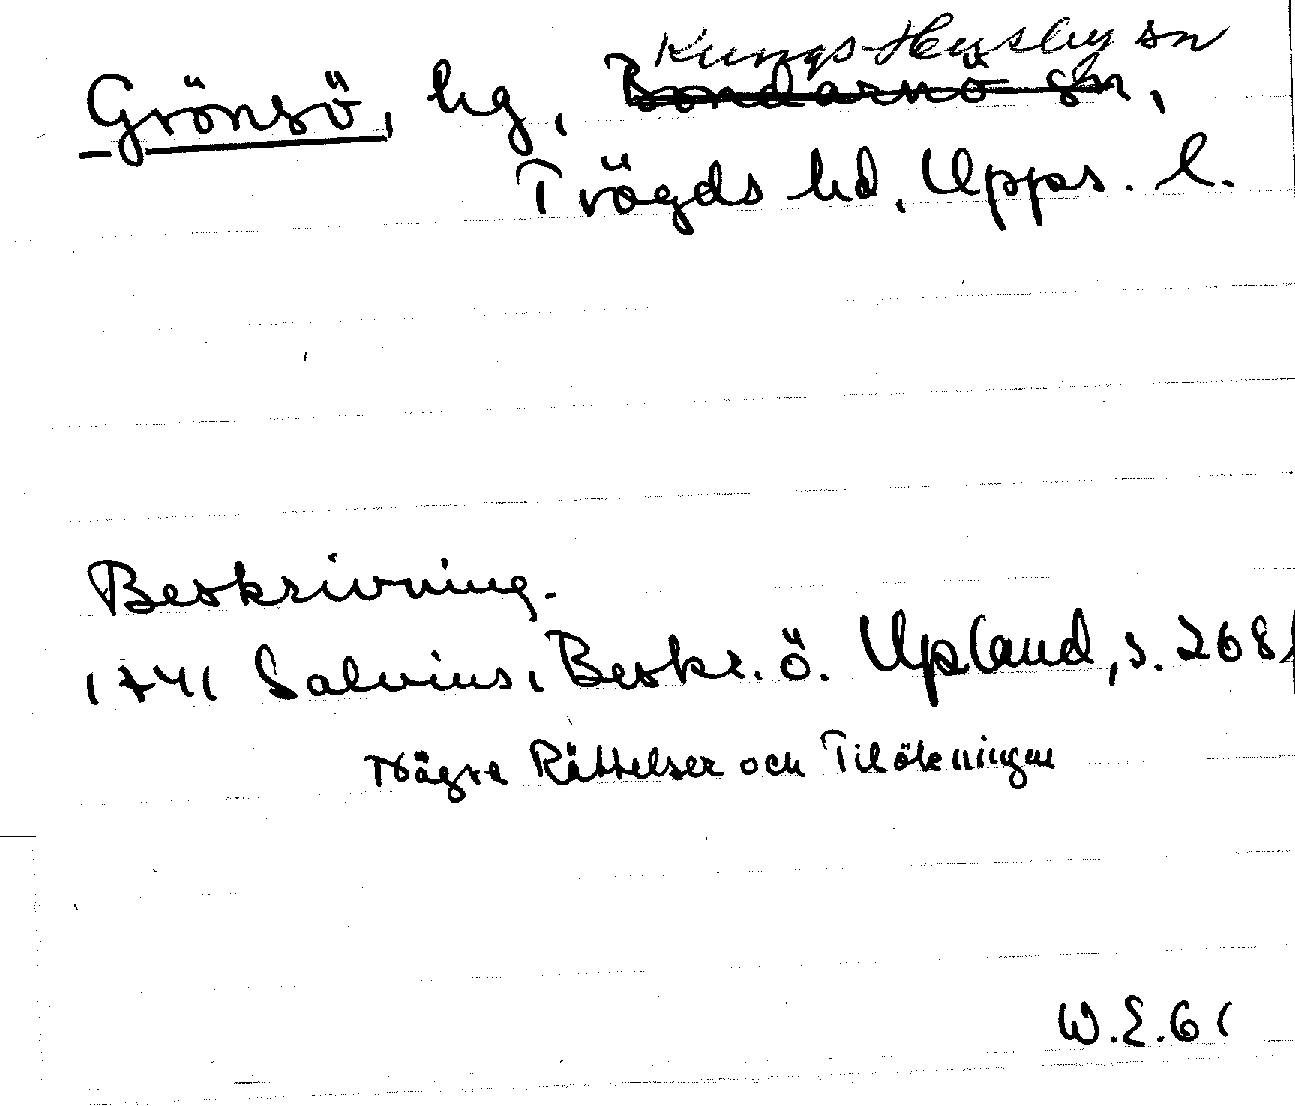 Kungs-Husby sn
Grönsö, hg, Bondarnö sn,
Trögds hd, Upps. l.
Beskrivning.
1741 Salvius, Beskr. ö. Upland, s. 268
Någre Rättelser och Tilökningar
W.E.61